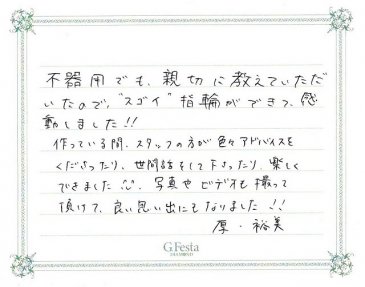 不器用でも、親切に教えていただ
いたので、"スゴイ"指輪ができて、感
動しました!!
作っている間、スタッフの方が色々アドバイスを
くださったり、世間話をして下さったり、楽しく
できました。写真やビデオも撮って
頂けて、良い思い出にもなりました!!
厚・裕美
G.Festa
DIAMOND